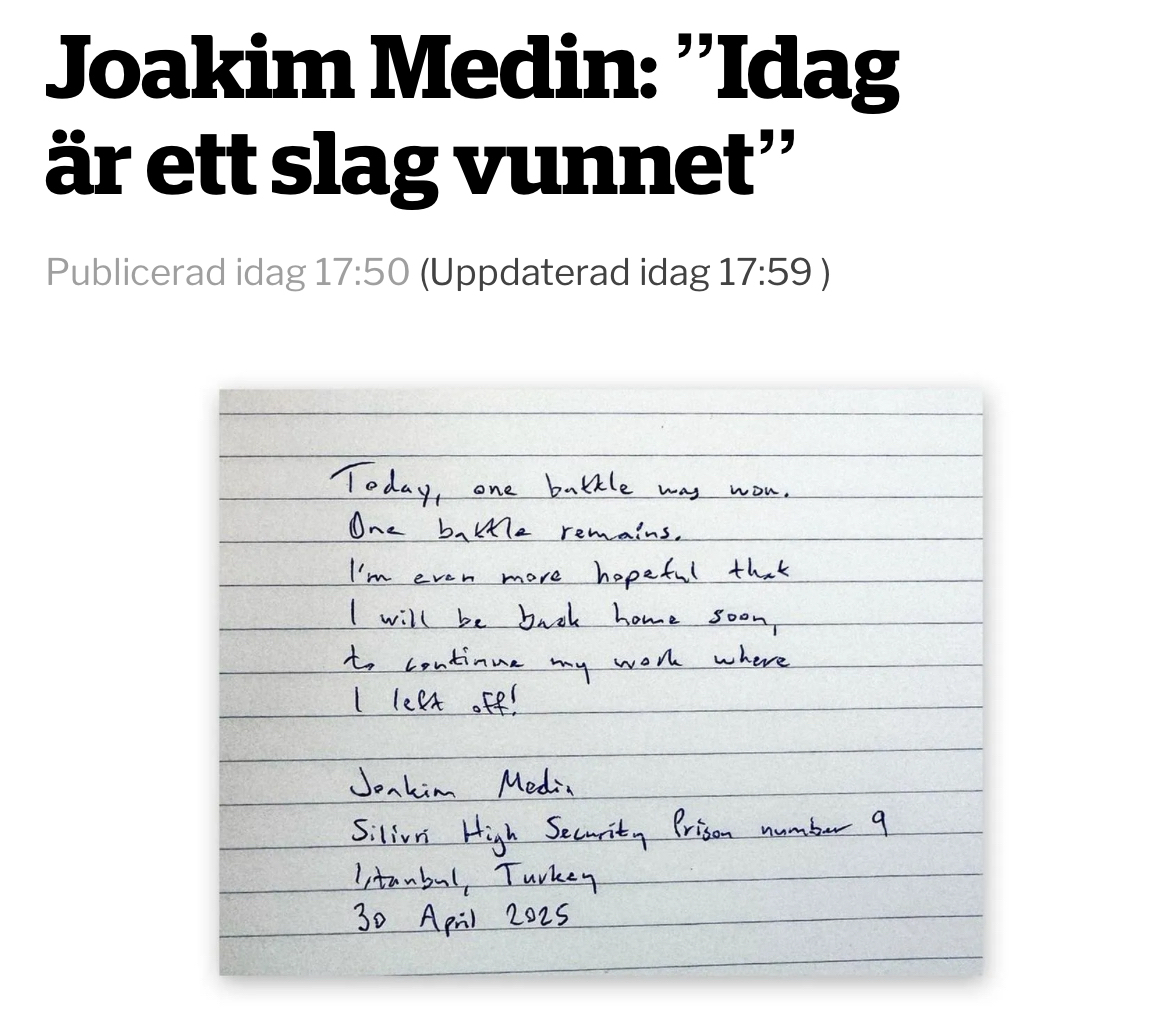 Joakim Medin: ”Idag
är ett slag vunnet”
Publicerad idag 17:50 (Uppdaterad idag 17:59 )
Today, one battle was won.
One battle remains.
I'm even more hopeful that
I will be back home soon,
to continue my work where
I left off!
Joakim Medin
Silivri High Security Prison number 9
Istanbul, Turkey
30 April 2025